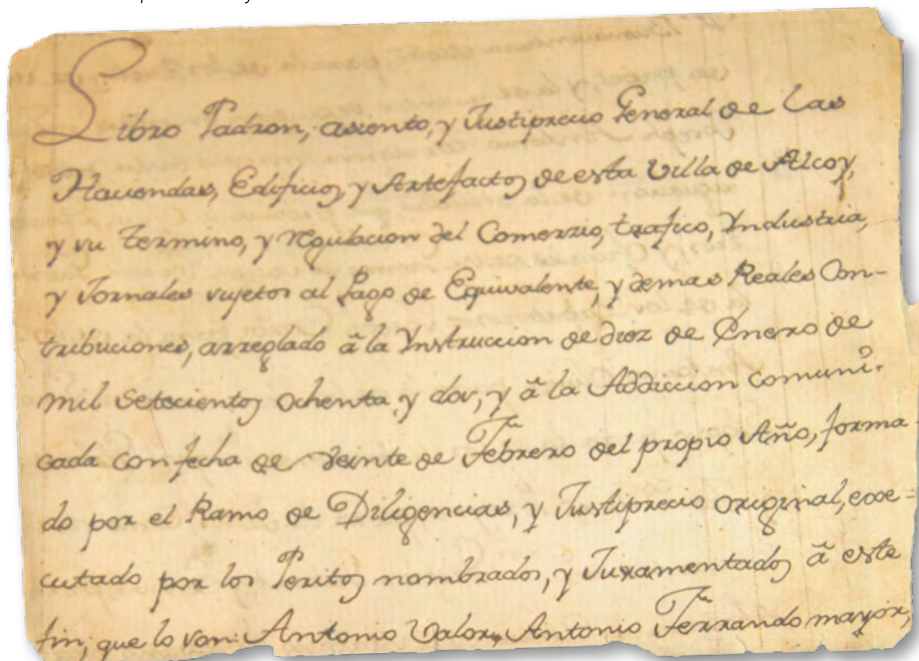 Libro Padron, asiento, y Justiprecio General de las
Haciendas, Edificios, y Artefactos de esta Villa de Alcoy,
y su termino, y regulacion del Comerzio, trafico, Yndustria,
y Jornales sujetos al Pago de Equivalente, y demas Reales Con-
tribuciones, arreglado â la Ynstruccion de diez de Enero de
mil setecientos ochenta y dos, y â la Addiccion comuni-
cada con fecha de veinte de Febrero del propio Año, forma-
do por el Ramo de Diligencias, y Justiprecio original, exe-
cutado por los Peritos nombrados, y Juramentados â este
fin; que lo son: Antonio Valor, Antonio Ferrando mayor,